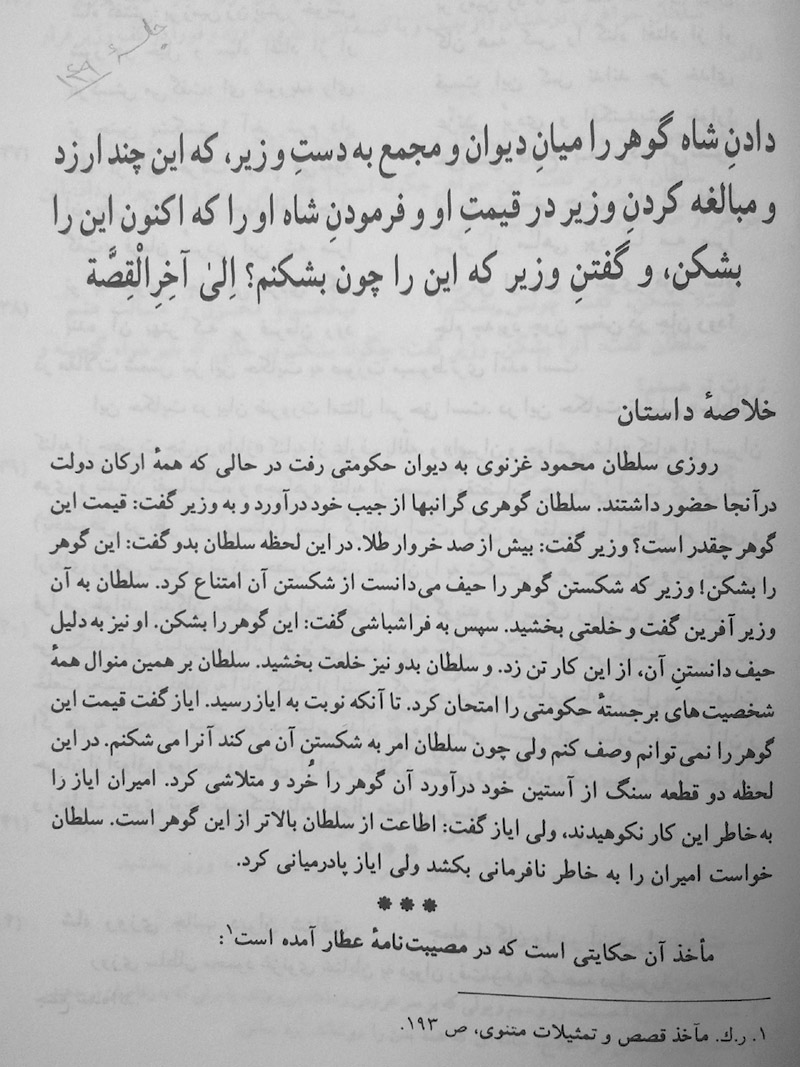 جلسهٔ ۱۴۹
دادنِ شاه گوهر را میانِ دیوان و مجمع به دستِ وزیر، که این چند ارزد
و مبالغه کردنِ وزیر در قیمتِ او و فرمودنِ شاه او را که اکنون این را
بشکن، و گفتنِ وزیر که این را چون بشکنم؟ اِلیٰ آخِرِالْقِصَّة
خلاصهٔ داستان
روزی سلطان محمود غزنوی به دیوان حکومتی رفت در حالی که همهٔ ارکان دولت
درآنجا حضور داشتند. سلطان گوهری گرانبها از جیب خود درآورد و به وزیر گفت: قیمت این
گوهر چقدر است؟ وزیر گفت: بیش از صد خروار طلا. در این لحظه سلطان بدو گفت: این گوهر
را بشکن! وزیر که شکستن گوهر را حیف می‌دانست از شکستن آن امتناع کرد. سلطان به آن
وزیر آفرین گفت و خلعتی بخشید. سپس به فراشباشی گفت: این گوهر را بشکن. او نیز به دلیل
حیف دانستنِ آن، از این کار تن زد. و سلطان بدو نیز خلعت بخشید. سلطان بر همین منوال همهٔ
شخصیت‌های برجستهٔ حکومتی را امتحان کرد. تا آنکه نوبت به ایاز رسید. ایاز گفت قیمت این
گوهر را نمی‌توانم وصف کنم ولی چون سلطان امر به شکستن آن می‌کند آنرا می‌شکنم. در این
لحظه دو قطعه سنگ از آستین خود درآورد آن گوهر را خُرد و متلاشی کرد. امیران ایاز را
به‌خاطر این کار نکوهیدند، ولی ایاز گفت: اطاعت از سلطان بالاتر از این گوهر است. سلطان
خواست امیران را به خاطر نافرمانی بکشد ولی ایاز پادرمیانی کرد.
***
مأخذ آن حکایتی است که در مصیبت‌نامهٔ عطار آمده است۱:
۱. ر.ك. مآخذ قصص و تمثیلات مثنوی، ص ۱۹۳.